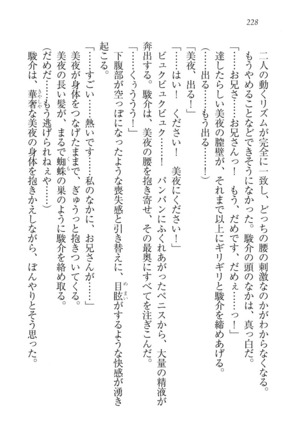 228
二人の動くリズムが完全に一致し、どっちの腰の刺激なのかがわからなくなる。
もうやめることなどできそうになかった。駿介の頭のなかは、真っ白だ。
「……お兄さん……お兄さんっ！　もう、だめです、だめぇ……っ！」
達したらしい美夜の膣壁が、それまで以上にギリギリと駿介を締めあげる。
（……出る……もう出る……！）
「美夜、出る！」
「……はい！　ください！　美夜にください！」
ビュクビュクビュク……！　パンパンにふくれあがったペニスから、大量の精液が
奔出する。駿介は、美夜の腰を抱き寄せ、その最奥にすべてを注ぎこんだ。
「……くぅううう！」
下腹部が空っぽになったような喪失感と引き替えに、目眩がするような快感が湧き
起こる。
「……すごい……熱いです……私のなかに、お兄さんが……」
美夜が身体をつなげたままで、ぎゅうっと抱きついてくる。
美夜の長い髪が、まるで蜘蛛の巣のように駿介を絡め取る。
（だめだ……もう逃げられねぇや……）
駿介は、華奢な美夜の身体を抱きかえしながら、ぼんやりとそう思った。